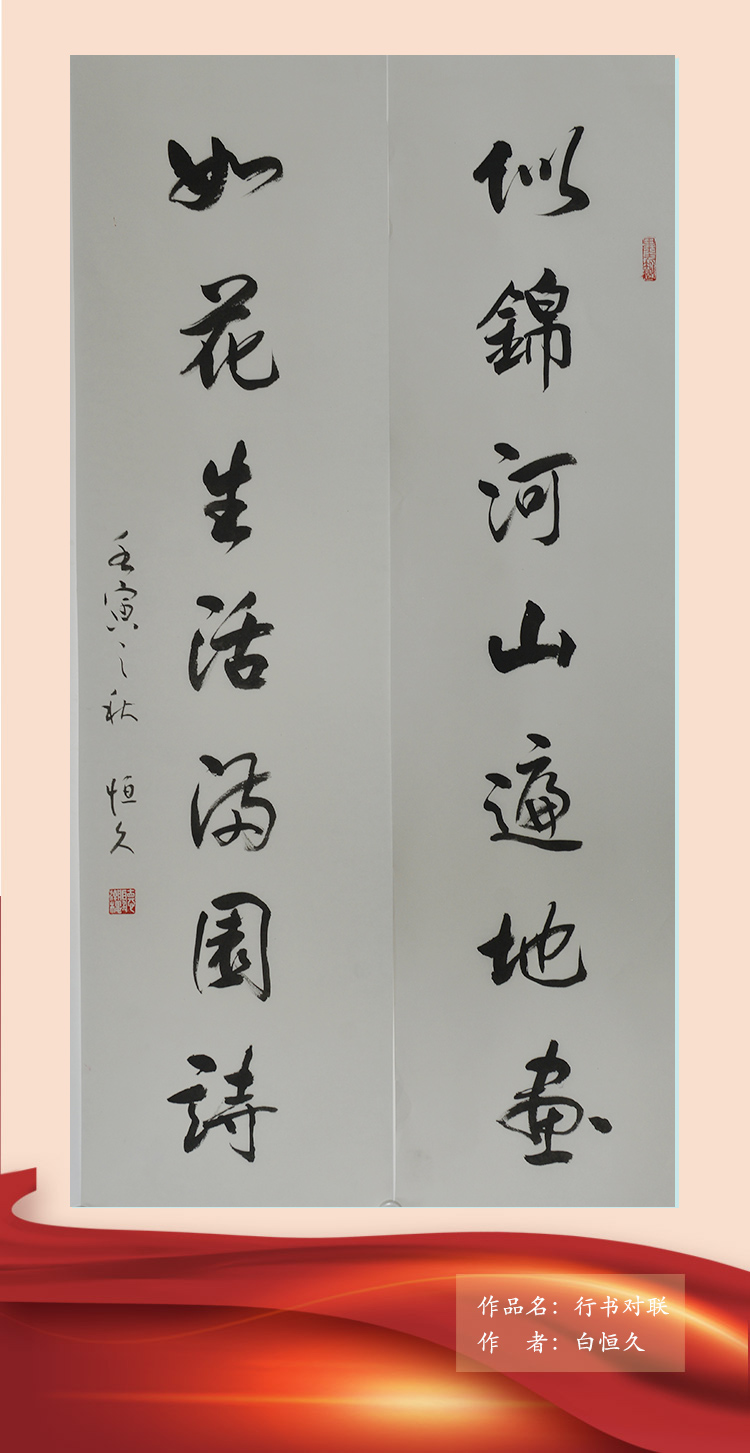 似錦河山遍地畫
如花生活满園詩
壬寅之秋 恒久
作品名：行书对联
作 者：白恒久